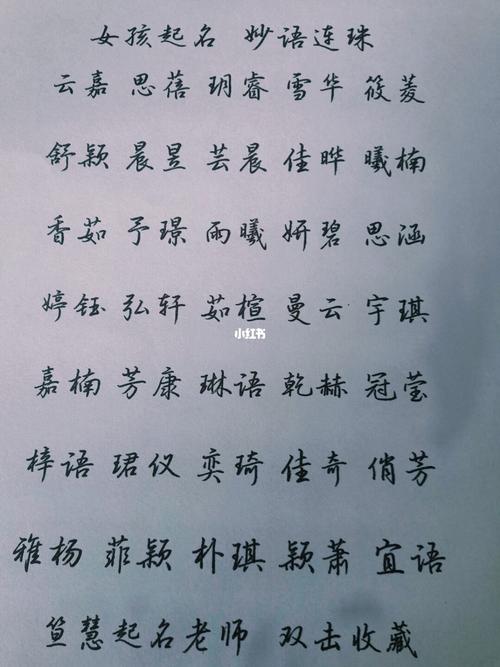 女孩起名 妙语连珠
云嘉 思蓓 玥睿 雪华 筱菱
舒颖 晨昱 芸晨 佳晔 曦楠
香茹 予璟 雨曦 妍碧 思涵
婷钰 弘轩 茹楦 曼云 宇琪
小红书
嘉楠 芳康 琳语 乾赫 冠莹
梓语 珺仪 奕琦 佳奇 俏芳
雅杨 菲颖 朴琪 颖萧 宜语
笪慧起名老师 双击收藏